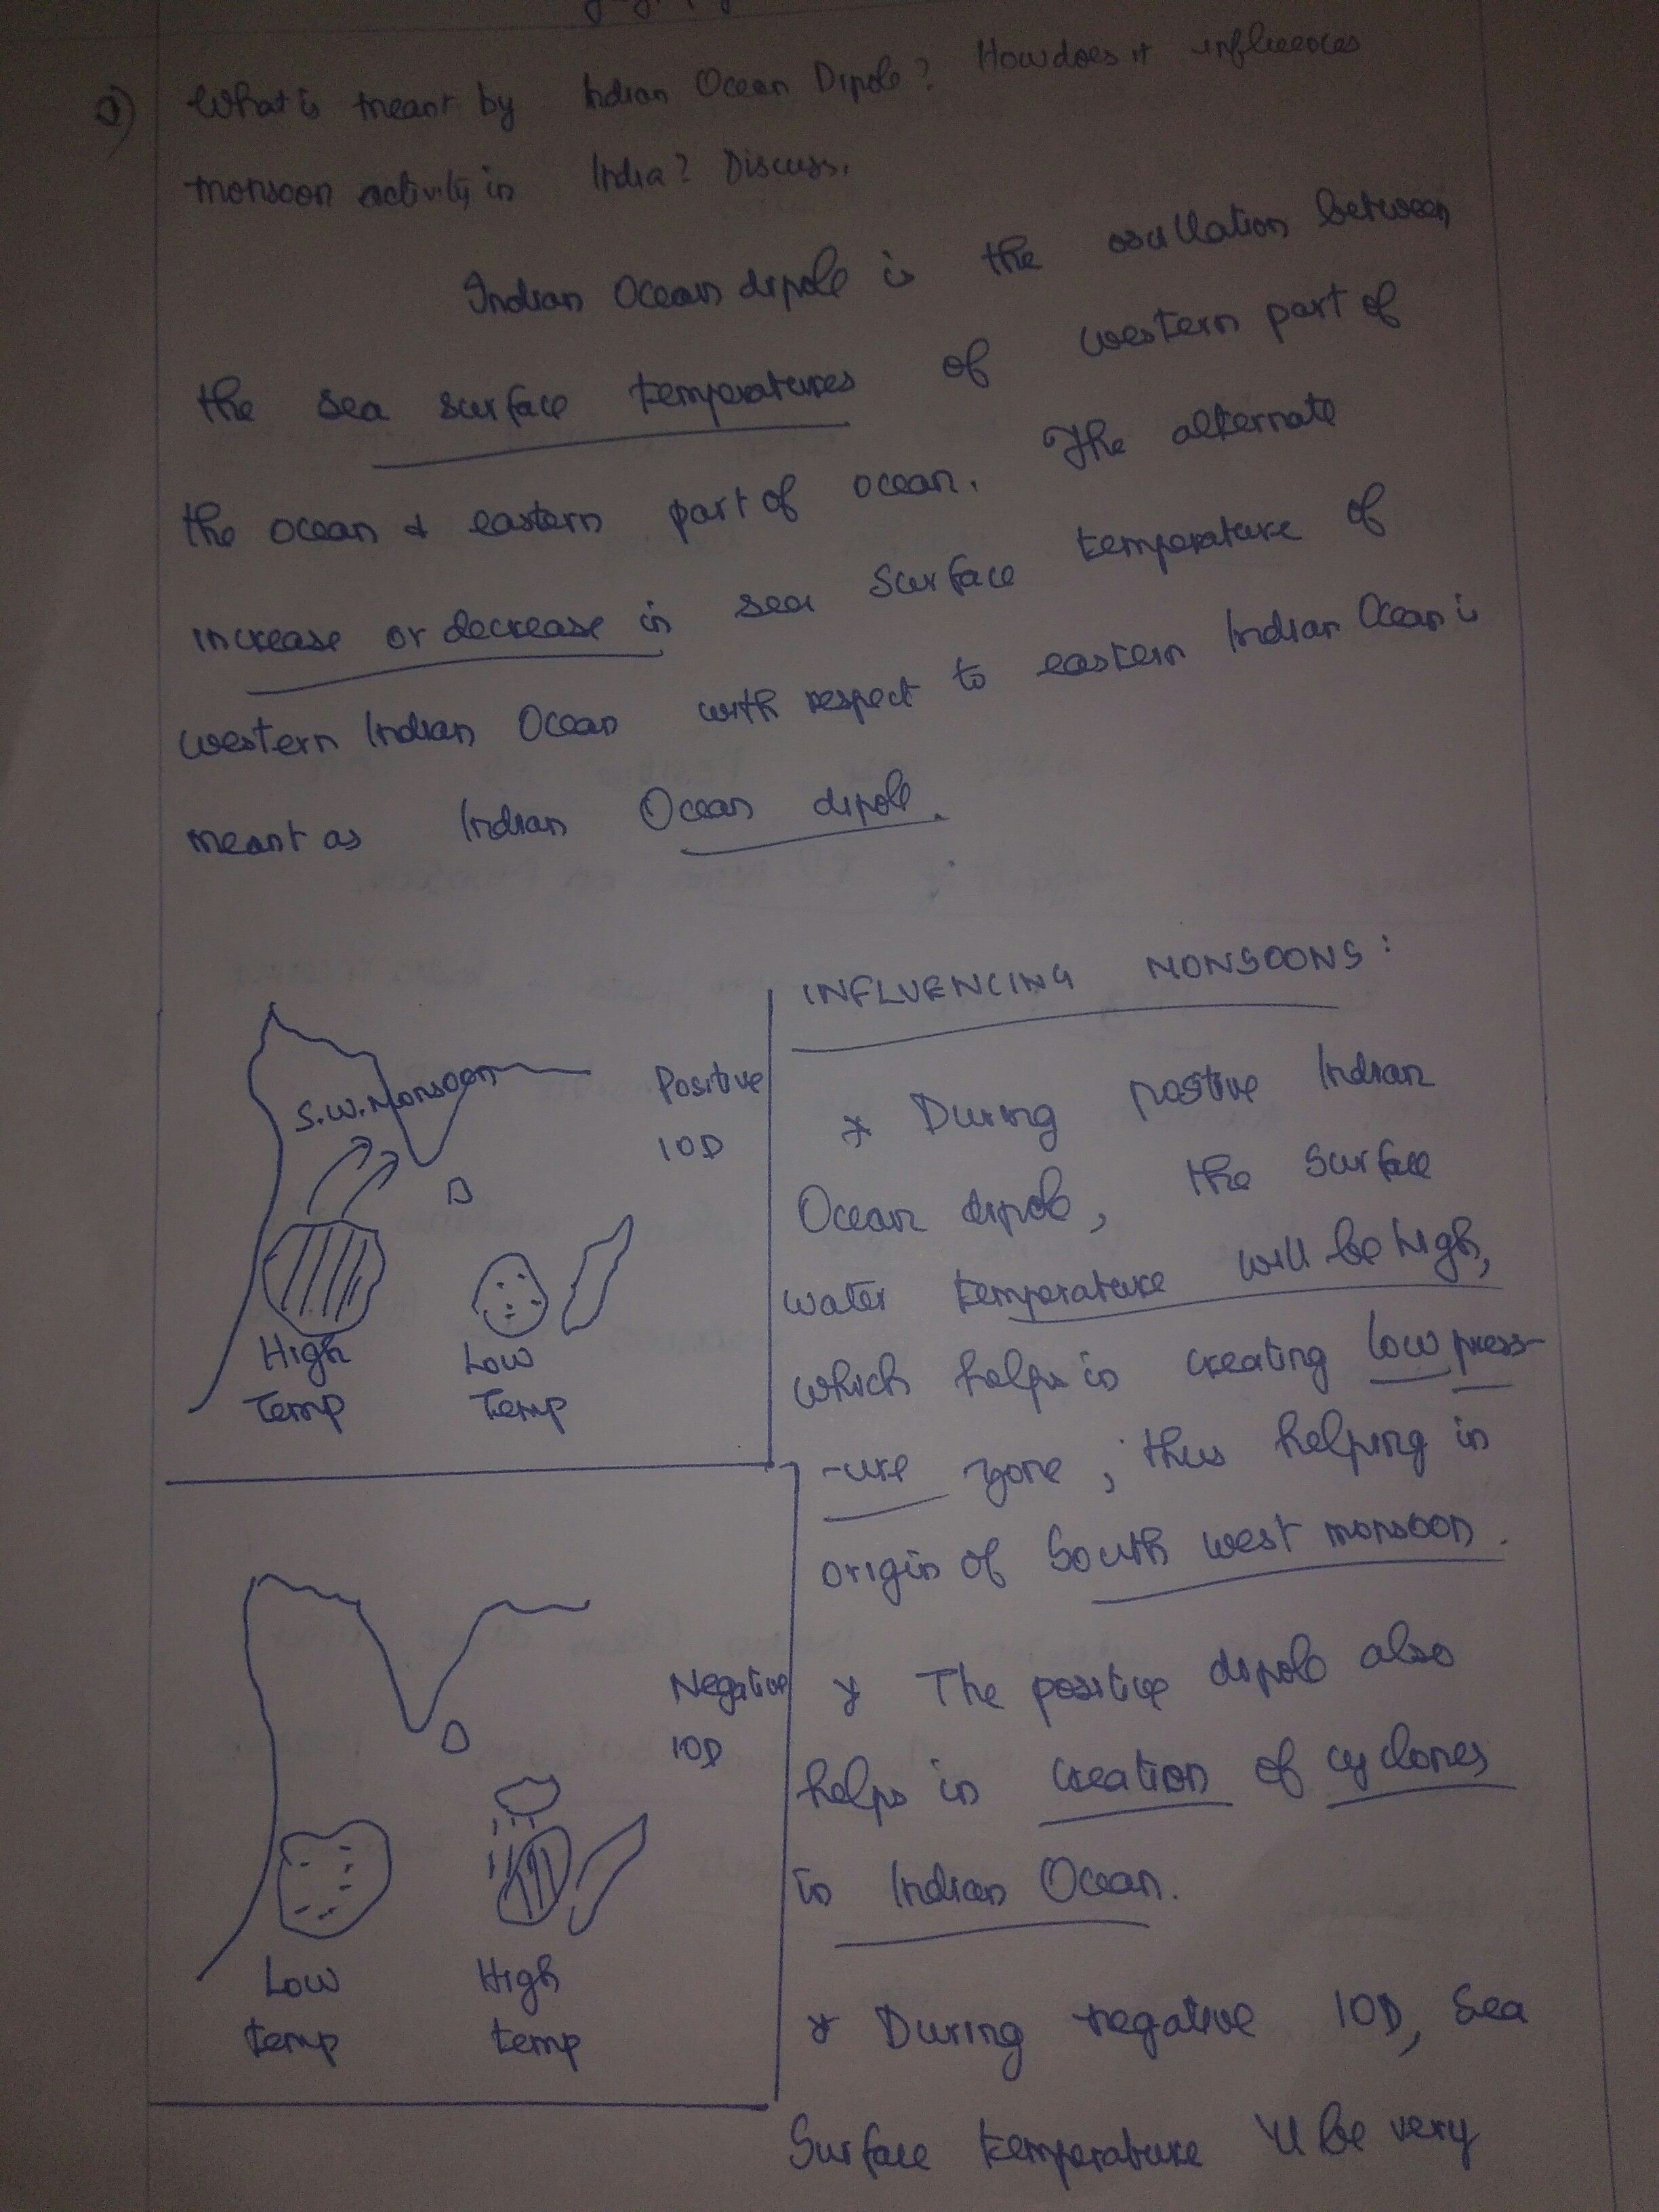 What is meant by Indian Ocean Dipole? How does it influences
monsoon activity in India? Discuss.
Indian Ocean dipole is the oscillation between
the sea surface temperatures of western part of
the ocean & eastern part of ocean. The alternate
increase or decrease in sea surface temperature of
western Indian Ocean with respect to eastern Indian Ocean is
meant as Indian Ocean dipole.
S.W. Monsoon
Positive
IOD
High
Temp
Low
Temp
INFLUENCING MONSOONS:
* During postive Indian
Ocean dipole, the surface
water temperature will be high,
which helps in creating low press-
-ure zone, thus helping in
origin of South west monsoon.
* The positive dipole also
helps in creation of cyclones
in Indian Ocean.
* During negative IOD, Sea
Surface temperature 'll be very
Negative
IOD
Low
temp
High
temp